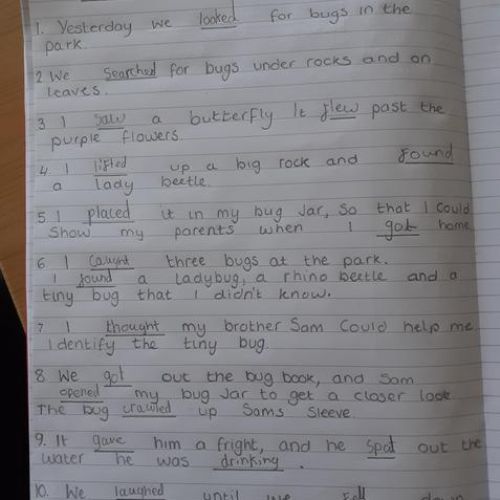 1. Yesterday we looked for bugs in the
park.
2 We searched for bugs under rocks and on
leaves.
3 I saw a butterfly It flew past the
purple flowers.
4. I lifted up a big rock and found
a lady beetle.
5. I placed it in my bug Jar, So that I Could
Show my parents when I got home
6 I Caught three bugs at the park.
I found a ladybug, a rhino beetle and a
tiny bug that I didn't know.
7 I thought my brother Sam Could help me
Identify the tiny bug.
8 We got out the bug book, and Sam
opened my bug Jar to get a closer look
The bug crawled up Sams Sleeve.
9. It gave him a fright, and he Spat out the
water he was drinking.
10. We laughed until we fell down